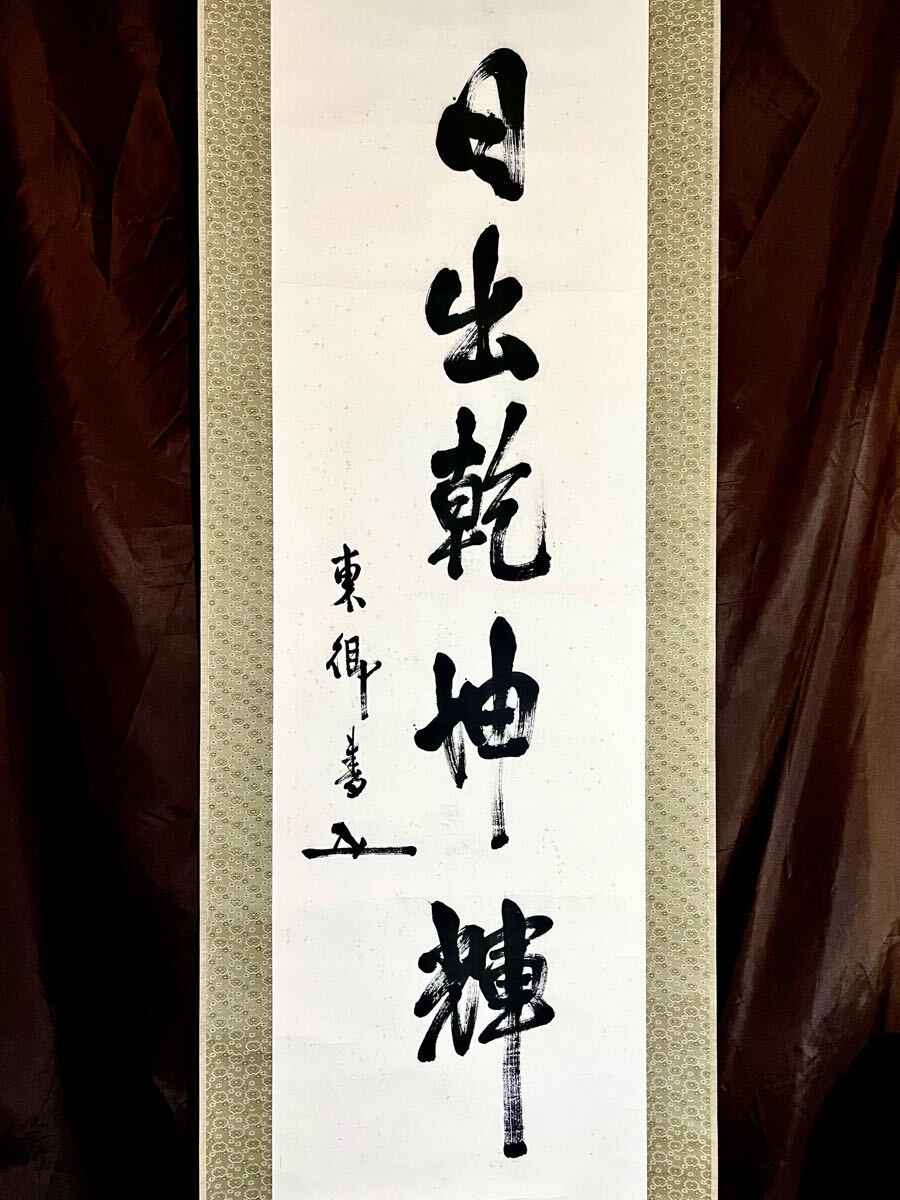 日出乾坤輝
東御書